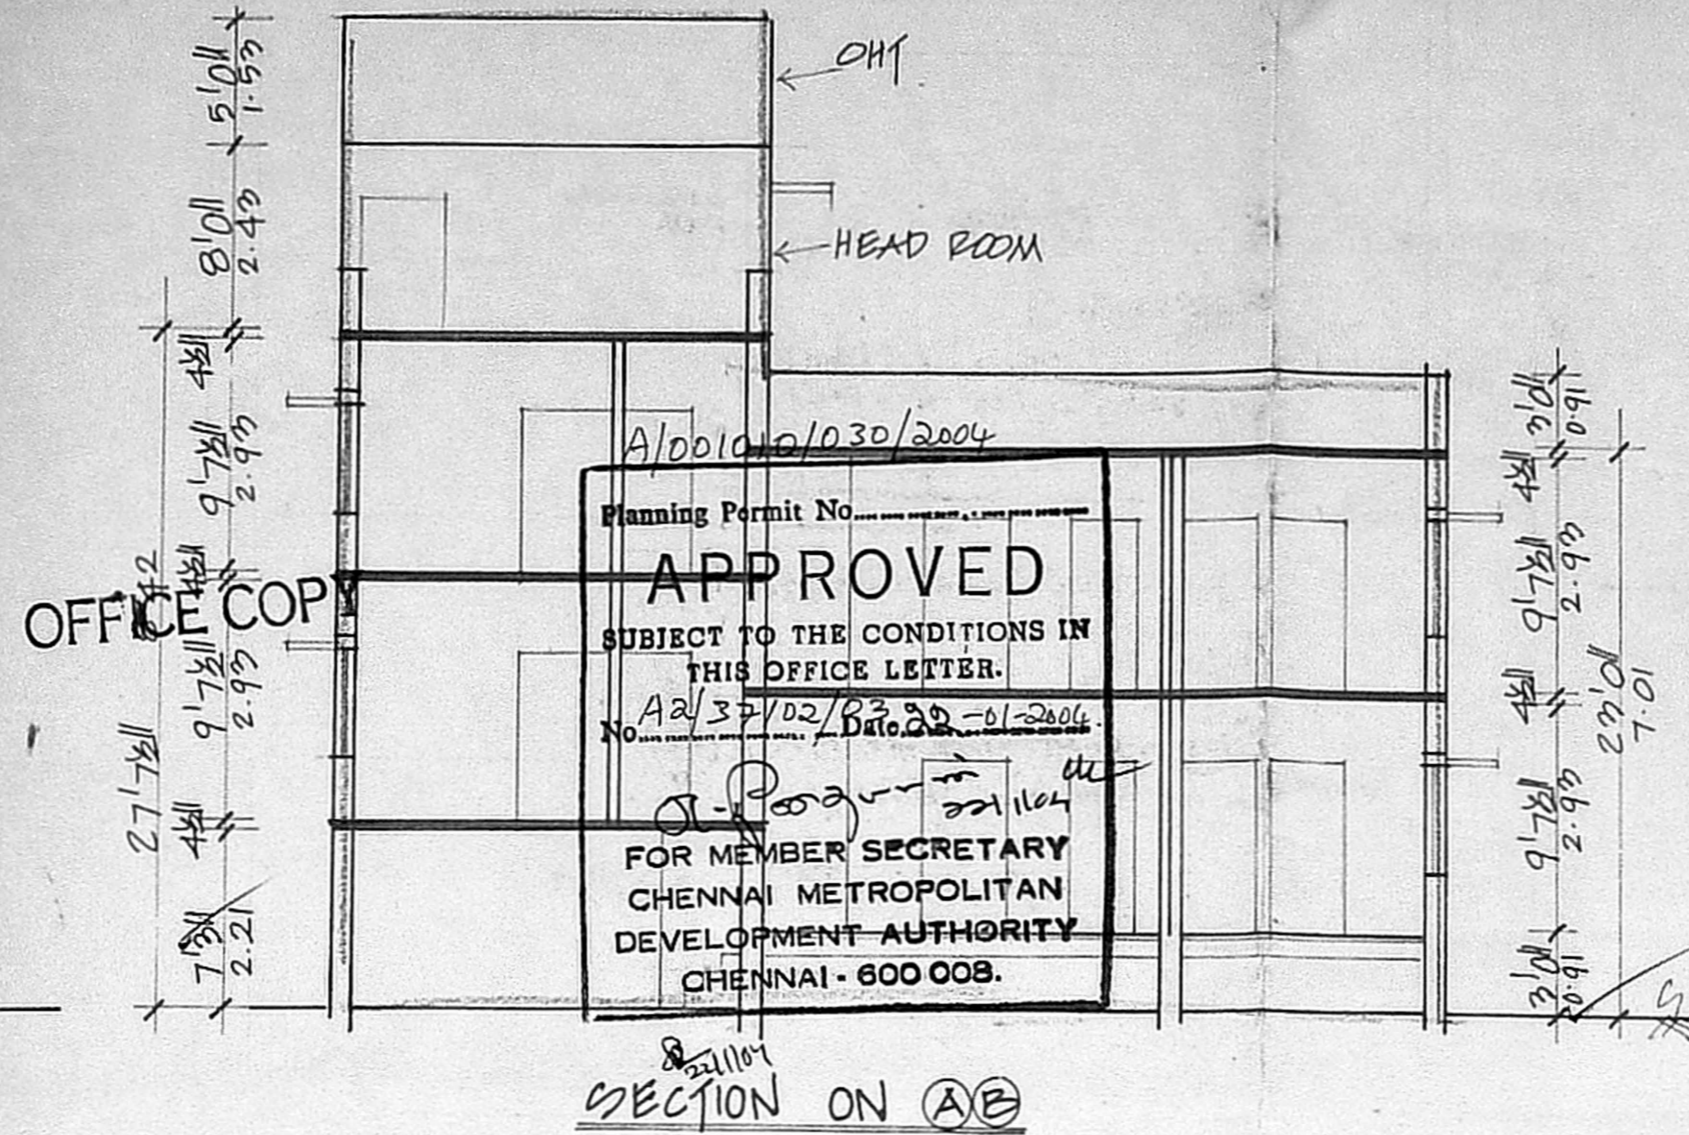 OHT
HEAD ROOM
5'0"
1.53
8'0"
2.43
4½"
9'7½"
2.93
4½"
9'7½"
2.93
4½"
7'3"
2.21
27'7½"
OFFICE COPY
A/001010/030/2004
Planning Permit No.
APPROVED
SUBJECT TO THE CONDITIONS IN
THIS OFFICE LETTER.
No. A2/37/02/03 Date. 22-01-2004.
22/1/04
FOR MEMBER SECRETARY
CHENNAI METROPOLITAN
DEVELOPMENT AUTHORITY
CHENNAI - 600 008.
22/1/04
3'0"
0.91
4½"
9'7½"
2.93
4½"
9'7½"
2.93
3'0"
0.91
23'0"
7.01
SECTION ON A B